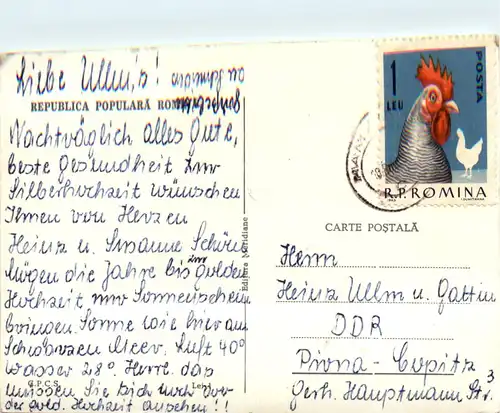 Liebe Ullm's!
REPUBLICA POPULARĂ ROM
Nachträglich alles Gute,
beste Gesundheit zur
Silberhochzeit wünschen
Ihnen von Herzen
Heinz u. Susanne Schön
Mögen die Jahre bis zur golden
Hochzeit nur Sonnenschein
bringen Sonne wie hier am
Schwarzen Meer. Luft 40°
Wasser 28°. Herrl. das
müssen Sie sich noch vor
der gold. Hochzeit ansehen!!
C.P.C.S.
Lei
Editura Meridiane
1
LEU
POSTA
R.P.ROMINA
CARTE POȘTALĂ
Herrn
Heinz Ullm u. Gattin
DDR
Pirna-Copitz
Gerh. Hauptmann Str. 3